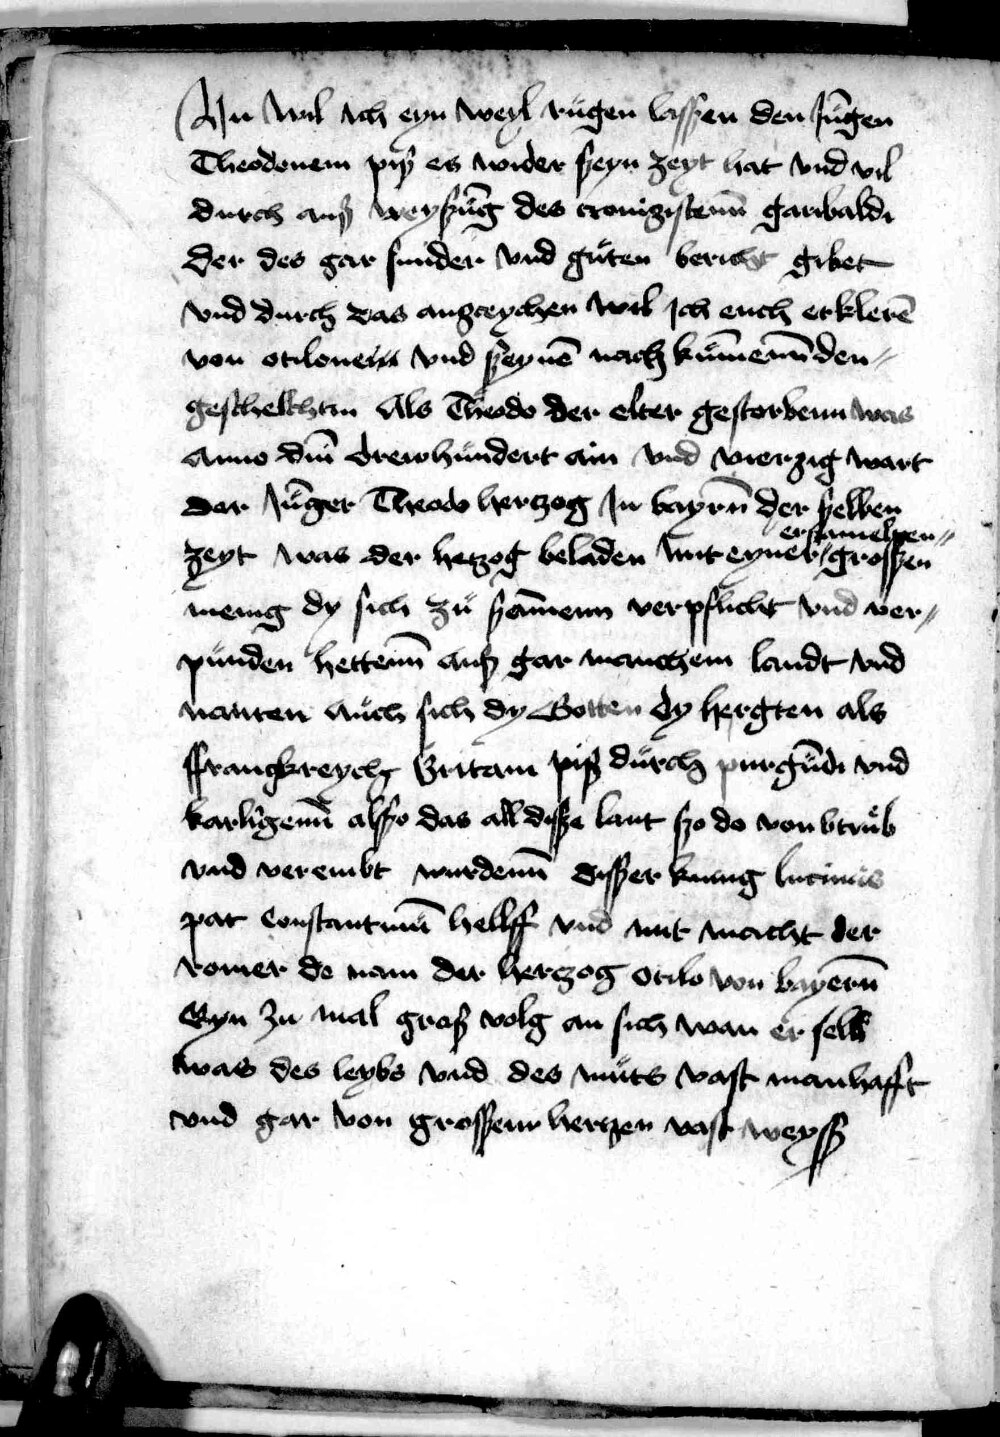 Nu wil ich eyn weyl rügen lassen den Jüngen
Theodonem piß es wider seyn zeyt hat vnd vil
durch auß weysung des cronigistenn garibaldi
der des gar sünder vnd güten bericht gibet
vnd durch das anzeychen wil Ich euch erklerē
von otilonem vnd seynē nach kümenn den
geschelchten Als Theodo der elter gestorbenn was
Anno dm̄ drewhündert ain vnd vierzig wart
der Jünger Theodo hertzog In bayrn̄ der selben
ersamelten
zeyt was der hetzog beladen mit eyner grossen
menig dy sich zü samenn verpflicht vnd ver
punden hettenn auß gar manchem landt vnd
nanten auch sich dy Gotten dy hergten als
Franckreych Britani piß durch purgūdi vnd
karligenn also das all disse lant so do von btrüb
vnd verembt wurdenn disser kunig lucinius
pat Constantinū hellff vnd mit macht der
romer de nam der hertzog otilo von bayern̄
Eyn zu mal groß volg an sich wan er selb
was des leybs vnd des müts vast manhafft
vnd gar von grossem hertzen vast weyß